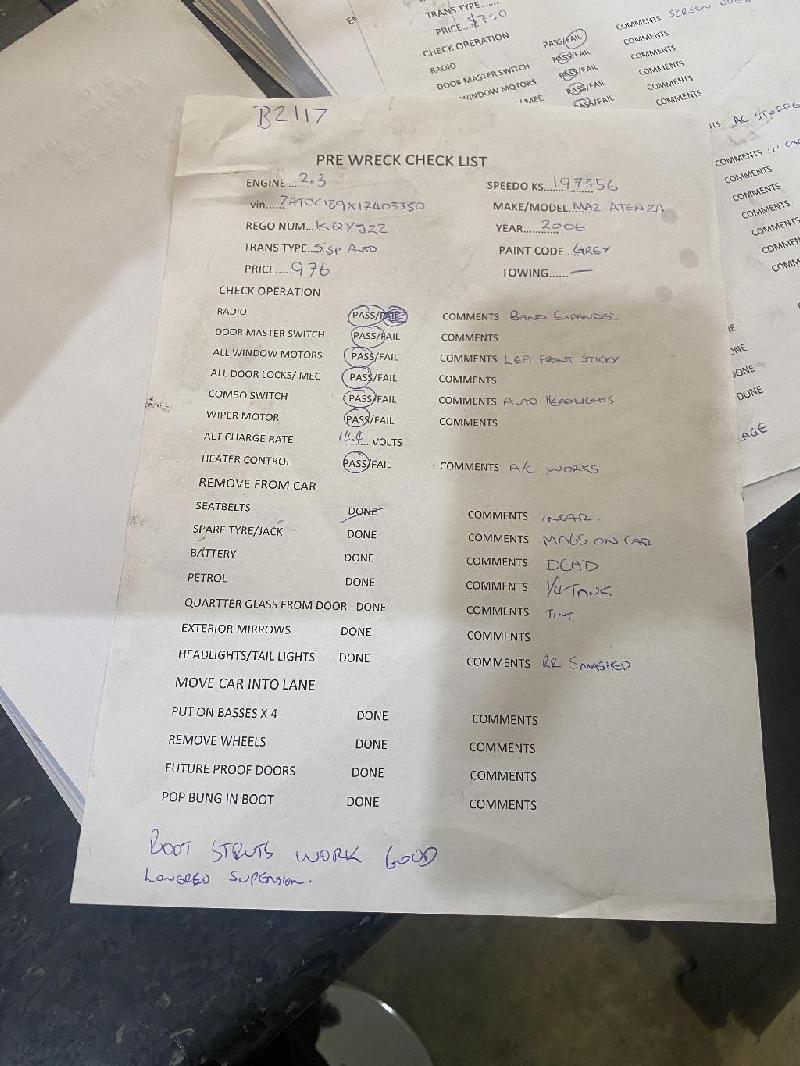 TRANS TYPE......
PRICE...$750
CHECK OPERATION
RADIO PASS/FAIL COMMENTS SCREEN
DOOR MASTER SWITCH PASS/FAIL COMMENTS
WINDOW MOTORS PASS/FAIL COMMENTS
PASS/FAIL COMMENTS
PASS/FAIL COMMENTS
B2117
PRE WRECK CHECK LIST
ENGINE.....2.3 SPEEDO KS...197356
vin..... MAKE/MODEL.MAZ ATENZA
REGO NUM... YEAR.....2006
TRANS TYPE..5 SP AUTO PAINT CODE..GREY
PRICE....976 TOWING......—
CHECK OPERATION
RADIO PASS/FAIL COMMENTS BAND EXPANDER
DOOR MASTER SWITCH PASS/FAIL COMMENTS
ALL WINDOW MOTORS PASS/FAIL COMMENTS LEFT FRONT STICKY
ALL DOOR LOCKS/ MEC PASS/FAIL COMMENTS
COMBO SWITCH PASS/FAIL COMMENTS AUTO HEADLIGHTS
WIPER MOTOR PASS/FAIL COMMENTS
ALT CHARGE RATE 14.4 VOLTS
HEATER CONTROL PASS/FAIL COMMENTS A/C WORKS
REMOVE FROM CAR
SEATBELTS DONE COMMENTS IN CAR.
SPARE TYRE/JACK DONE COMMENTS MAGS ON CAR
BATTERY DONE COMMENTS DEAD
PETROL DONE COMMENTS 1/4 TANK
QUARTTER GLASS FROM DOOR DONE COMMENTS TINT
EXTERIOR MIRROWS DONE COMMENTS
HEADLIGHTS/TAIL LIGHTS DONE COMMENTS RR SMASHED
MOVE CAR INTO LANE
PUT ON BASSES X 4 DONE COMMENTS
REMOVE WHEELS DONE COMMENTS
FUTURE PROOF DOORS DONE COMMENTS
POP BUNG IN BOOT DONE COMMENTS
BOOT STRUTS WORK GOOD
LOWERED SUPENSION.
COMMENTS
COMMENTS
COMMENTS
COMMENTS
COMMENTS
DONE
DONE